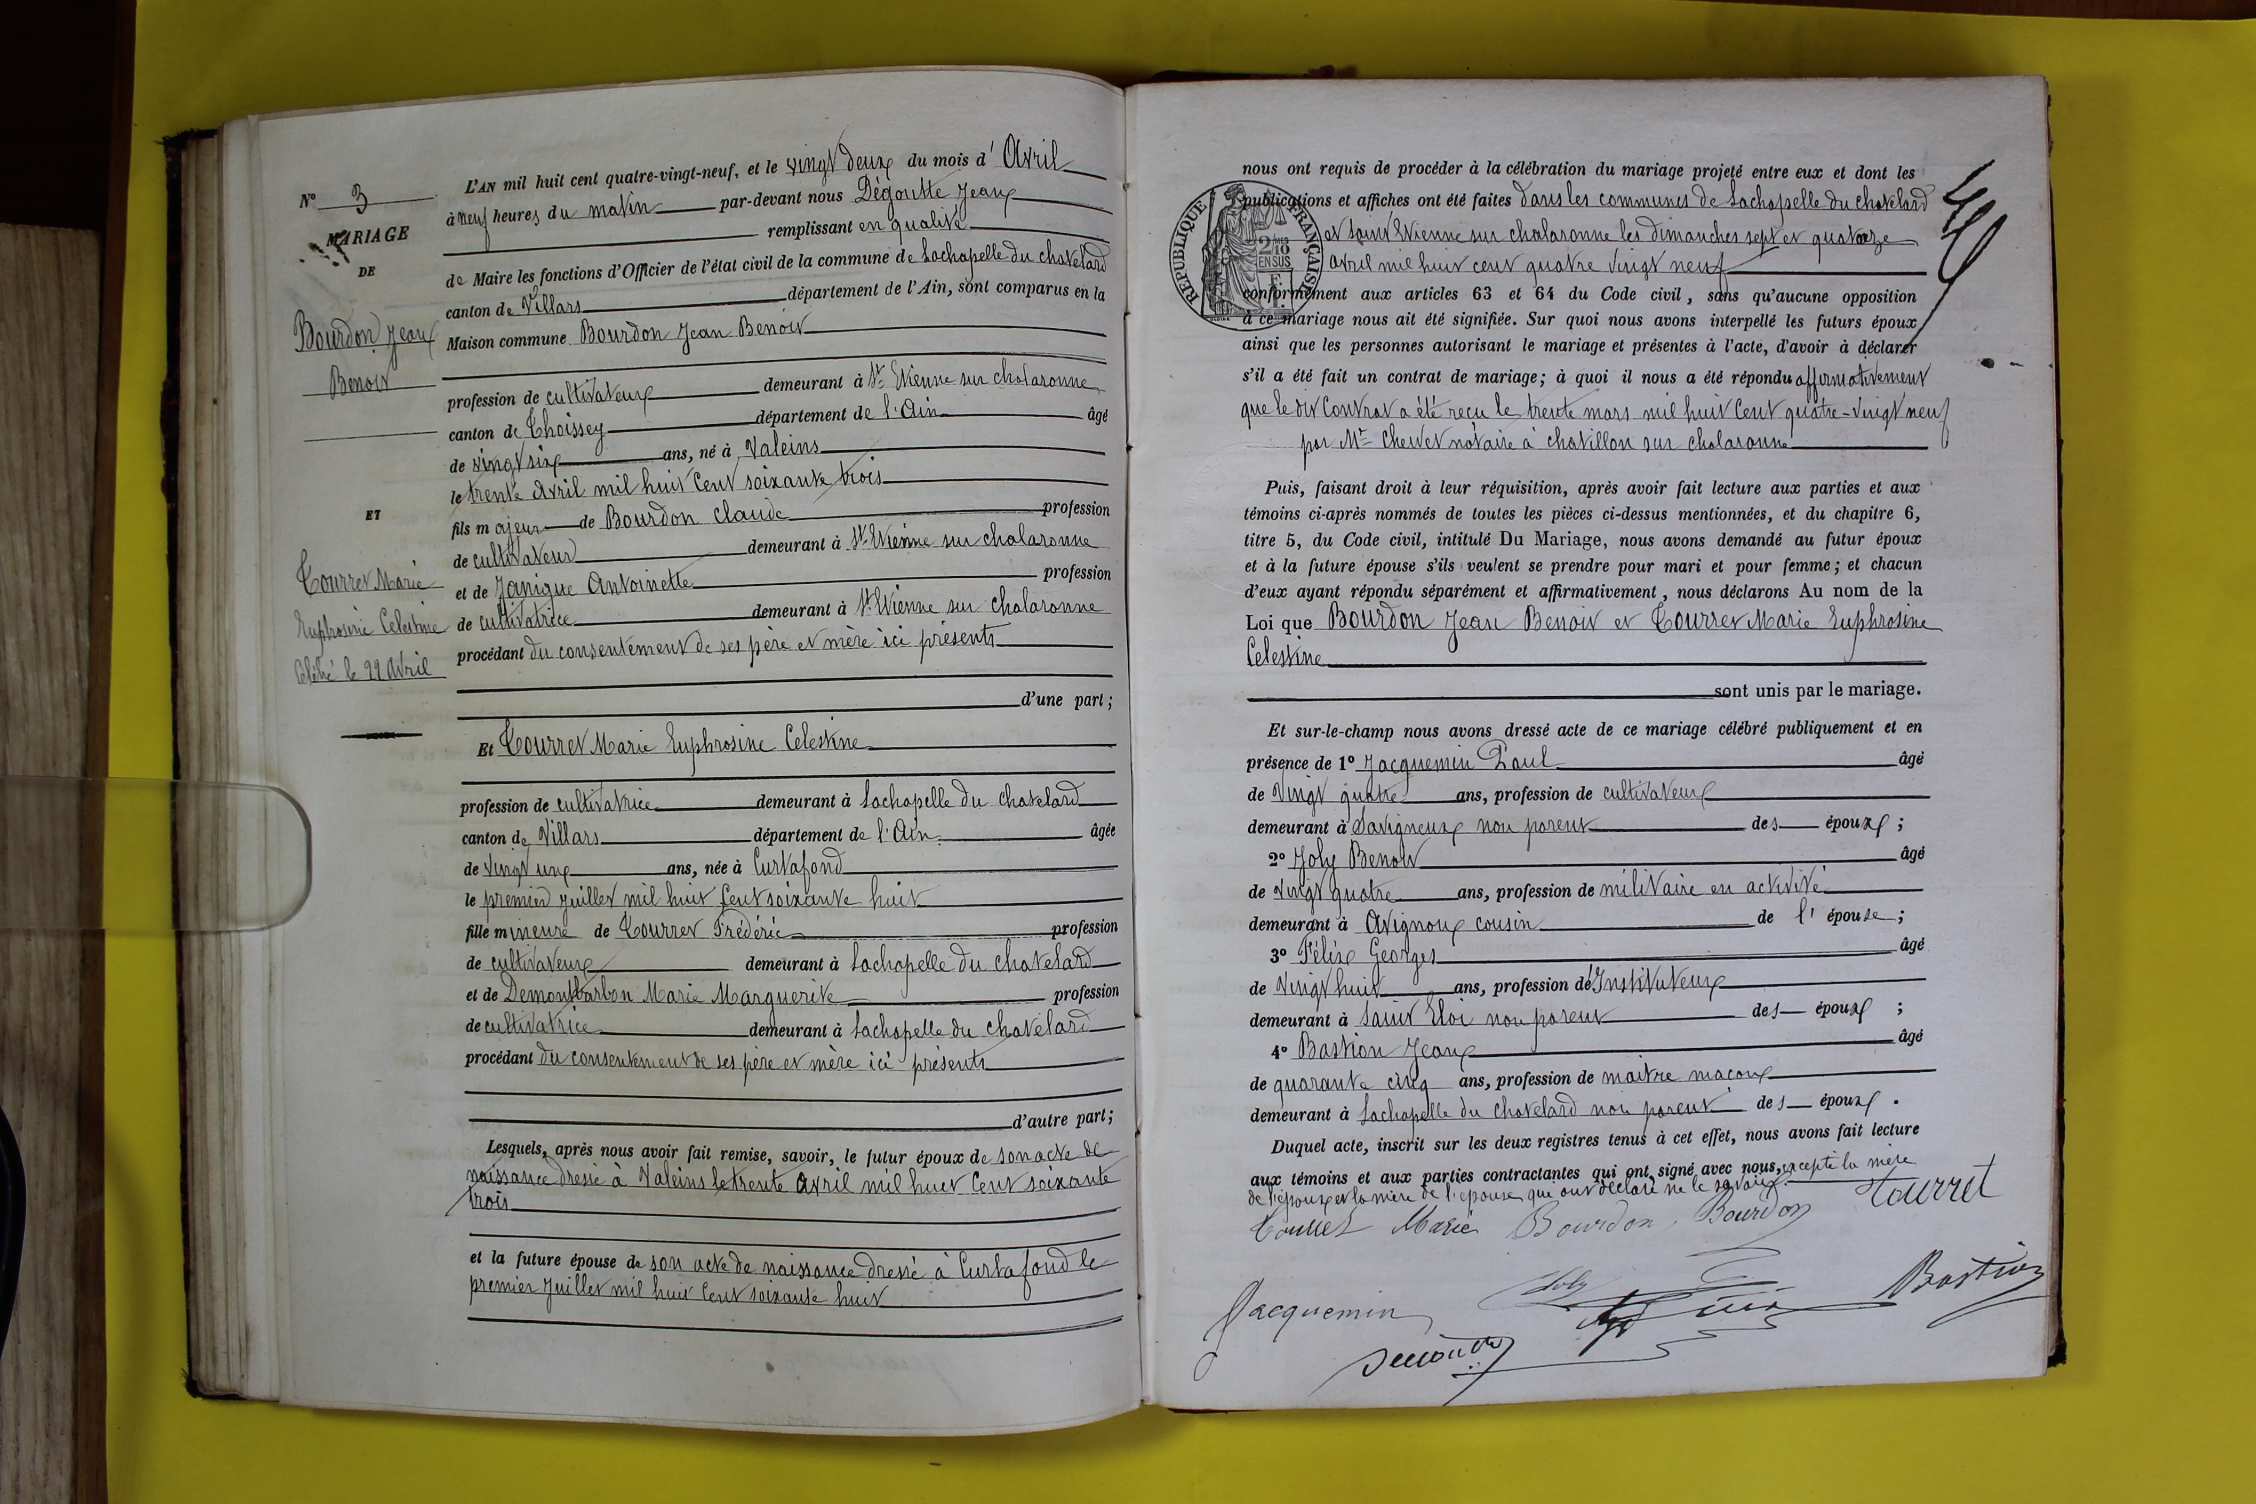 N° 3
MARIAGE
DE
Bourdon Jean
Benoit
ET
Tourret Marie
Euphrosine Celestine
Célébré le 22 Avril
L'AN mil huit cent quatre-vingt-neuf, et le vingt deux du mois d' Avril
à neuf heures du matin par-devant nous Dégoutte Jean
remplissant en qualité
de Maire les fonctions d'Officier de l'état civil de la commune de Lachapelle du chatelard
canton de Villars département de l'Ain, sont comparus en la
Maison commune Bourdon Jean Benoit
profession de cultivateur demeurant à St Etienne sur chalaronne
canton de Thoissey département de l'Ain âgé
de vingt six ans, né à Valeins
le trente Avril mil huit Cent soixante trois
fils majeur de Bourdon Claude profession
de cultivateur demeurant à St Etienne sur chalaronne
et de Janigue Antoinette profession
de cultivatrice demeurant à St Etienne sur chalaronne
procédant du consentement de ses père et mère ici présents
d'une part;
Et Tourret Marie Euphrosine Celestine
profession de cultivatrice demeurant à Lachapelle du chatelard
canton de Villars département de l'Ain âgée
de vingt un ans, née à Curtafond
le premier Juillet mil huit Cent soixante huit
fille mineure de Tourret Frédéric profession
de cultivateur demeurant à Lachapelle du chatelard
et de Demontbarbon Marie Marguerite profession
de cultivatrice demeurant à Lachapelle du chatelard
procédant du consentement de ses père et mère ici présents
d'autre part;
Lesquels, après nous avoir fait remise, savoir, le futur époux de son acte de
naissance dressé à Valeins le trente Avril mil huit Cent soixante
trois
et la future épouse de son acte de naissance dressé à Curtafond le
premier Juillet mil huit Cent soixante huit
nous ont requis de procéder à la célébration du mariage projeté entre eux et dont les
publications et affiches ont été faites dans les communes de Lachapelle du chatelard
et saint Etienne sur chalaronne les dimanches sept et quatorze
avril mil huit cent quatre vingt neuf
RÉPUBLIQUE FRANÇAISE
2/10 EN SUS
conformément aux articles 63 et 64 du Code civil, sans qu'aucune opposition
à ce mariage nous ait été signifiée. Sur quoi nous avons interpellé les futurs époux
ainsi que les personnes autorisant le mariage et présentes à l'acte, d'avoir à déclarer
s'il a été fait un contrat de mariage; à quoi il nous a été répondu affirmativement
que le dit Contrat a été reçu le trente mars mil huit Cent quatre-vingt neuf
par Mr notaire à chatillon sur chalaronne
Puis, faisant droit à leur réquisition, après avoir fait lecture aux parties et aux
témoins ci-après nommés de toutes les pièces ci-dessus mentionnées, et du chapitre 6,
titre 5, du Code civil, intitulé Du Mariage, nous avons demandé au futur époux
et à la future épouse s'ils veulent se prendre pour mari et pour femme; et chacun
d'eux ayant répondu séparément et affirmativement, nous déclarons Au nom de la
Loi que Bourdon Jean Benoit et Tourret Marie Euphrosine
Celestine
sont unis par le mariage.
Et sur-le-champ nous avons dressé acte de ce mariage célébré publiquement et en
présence de 1° Jacquemin Paul âgé
de vingt quatre ans, profession de cultivateur
demeurant à Savigneux non parent des époux;
2° Joly Benoit âgé
de vingt quatre ans, profession de militaire en activité
demeurant à Avignon cousin de l'épouse;
3° Félix Georges âgé
de vingt huit ans, profession d'Instituteur
demeurant à Saint Eloi non parent des époux;
4° Bastion Jean âgé
de quarante cinq ans, profession de maitre maçon
demeurant à Lachapelle du chatelard non parent des époux.
Duquel acte, inscrit sur les deux registres tenus à cet effet, nous avons fait lecture
aux témoins et aux parties contractantes qui ont signé avec nous, excepté la mère
de l'époux et la mère de l'épouse que ont déclaré ne le savoir.
Tourret Marie Bourdon Bourdon Tourret
Jacquemin Joly Bastion